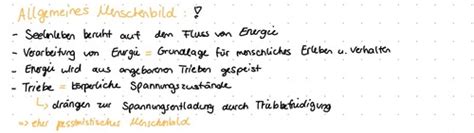 Allgemeines Menschenbild: !
- Seelenleben beruht auf dem Fluss von Energie
- Verarbeitung von Energie = Grundlage für menschliches Erleben u. Verhalten
- Energie wird aus angeborenen Trieben gespeist
- Triebe = körperliche Spannungszustände
↳ drängen zur Spannungsentladung durch Triebbefriedigung
=> eher pessimistisches Menschenbild